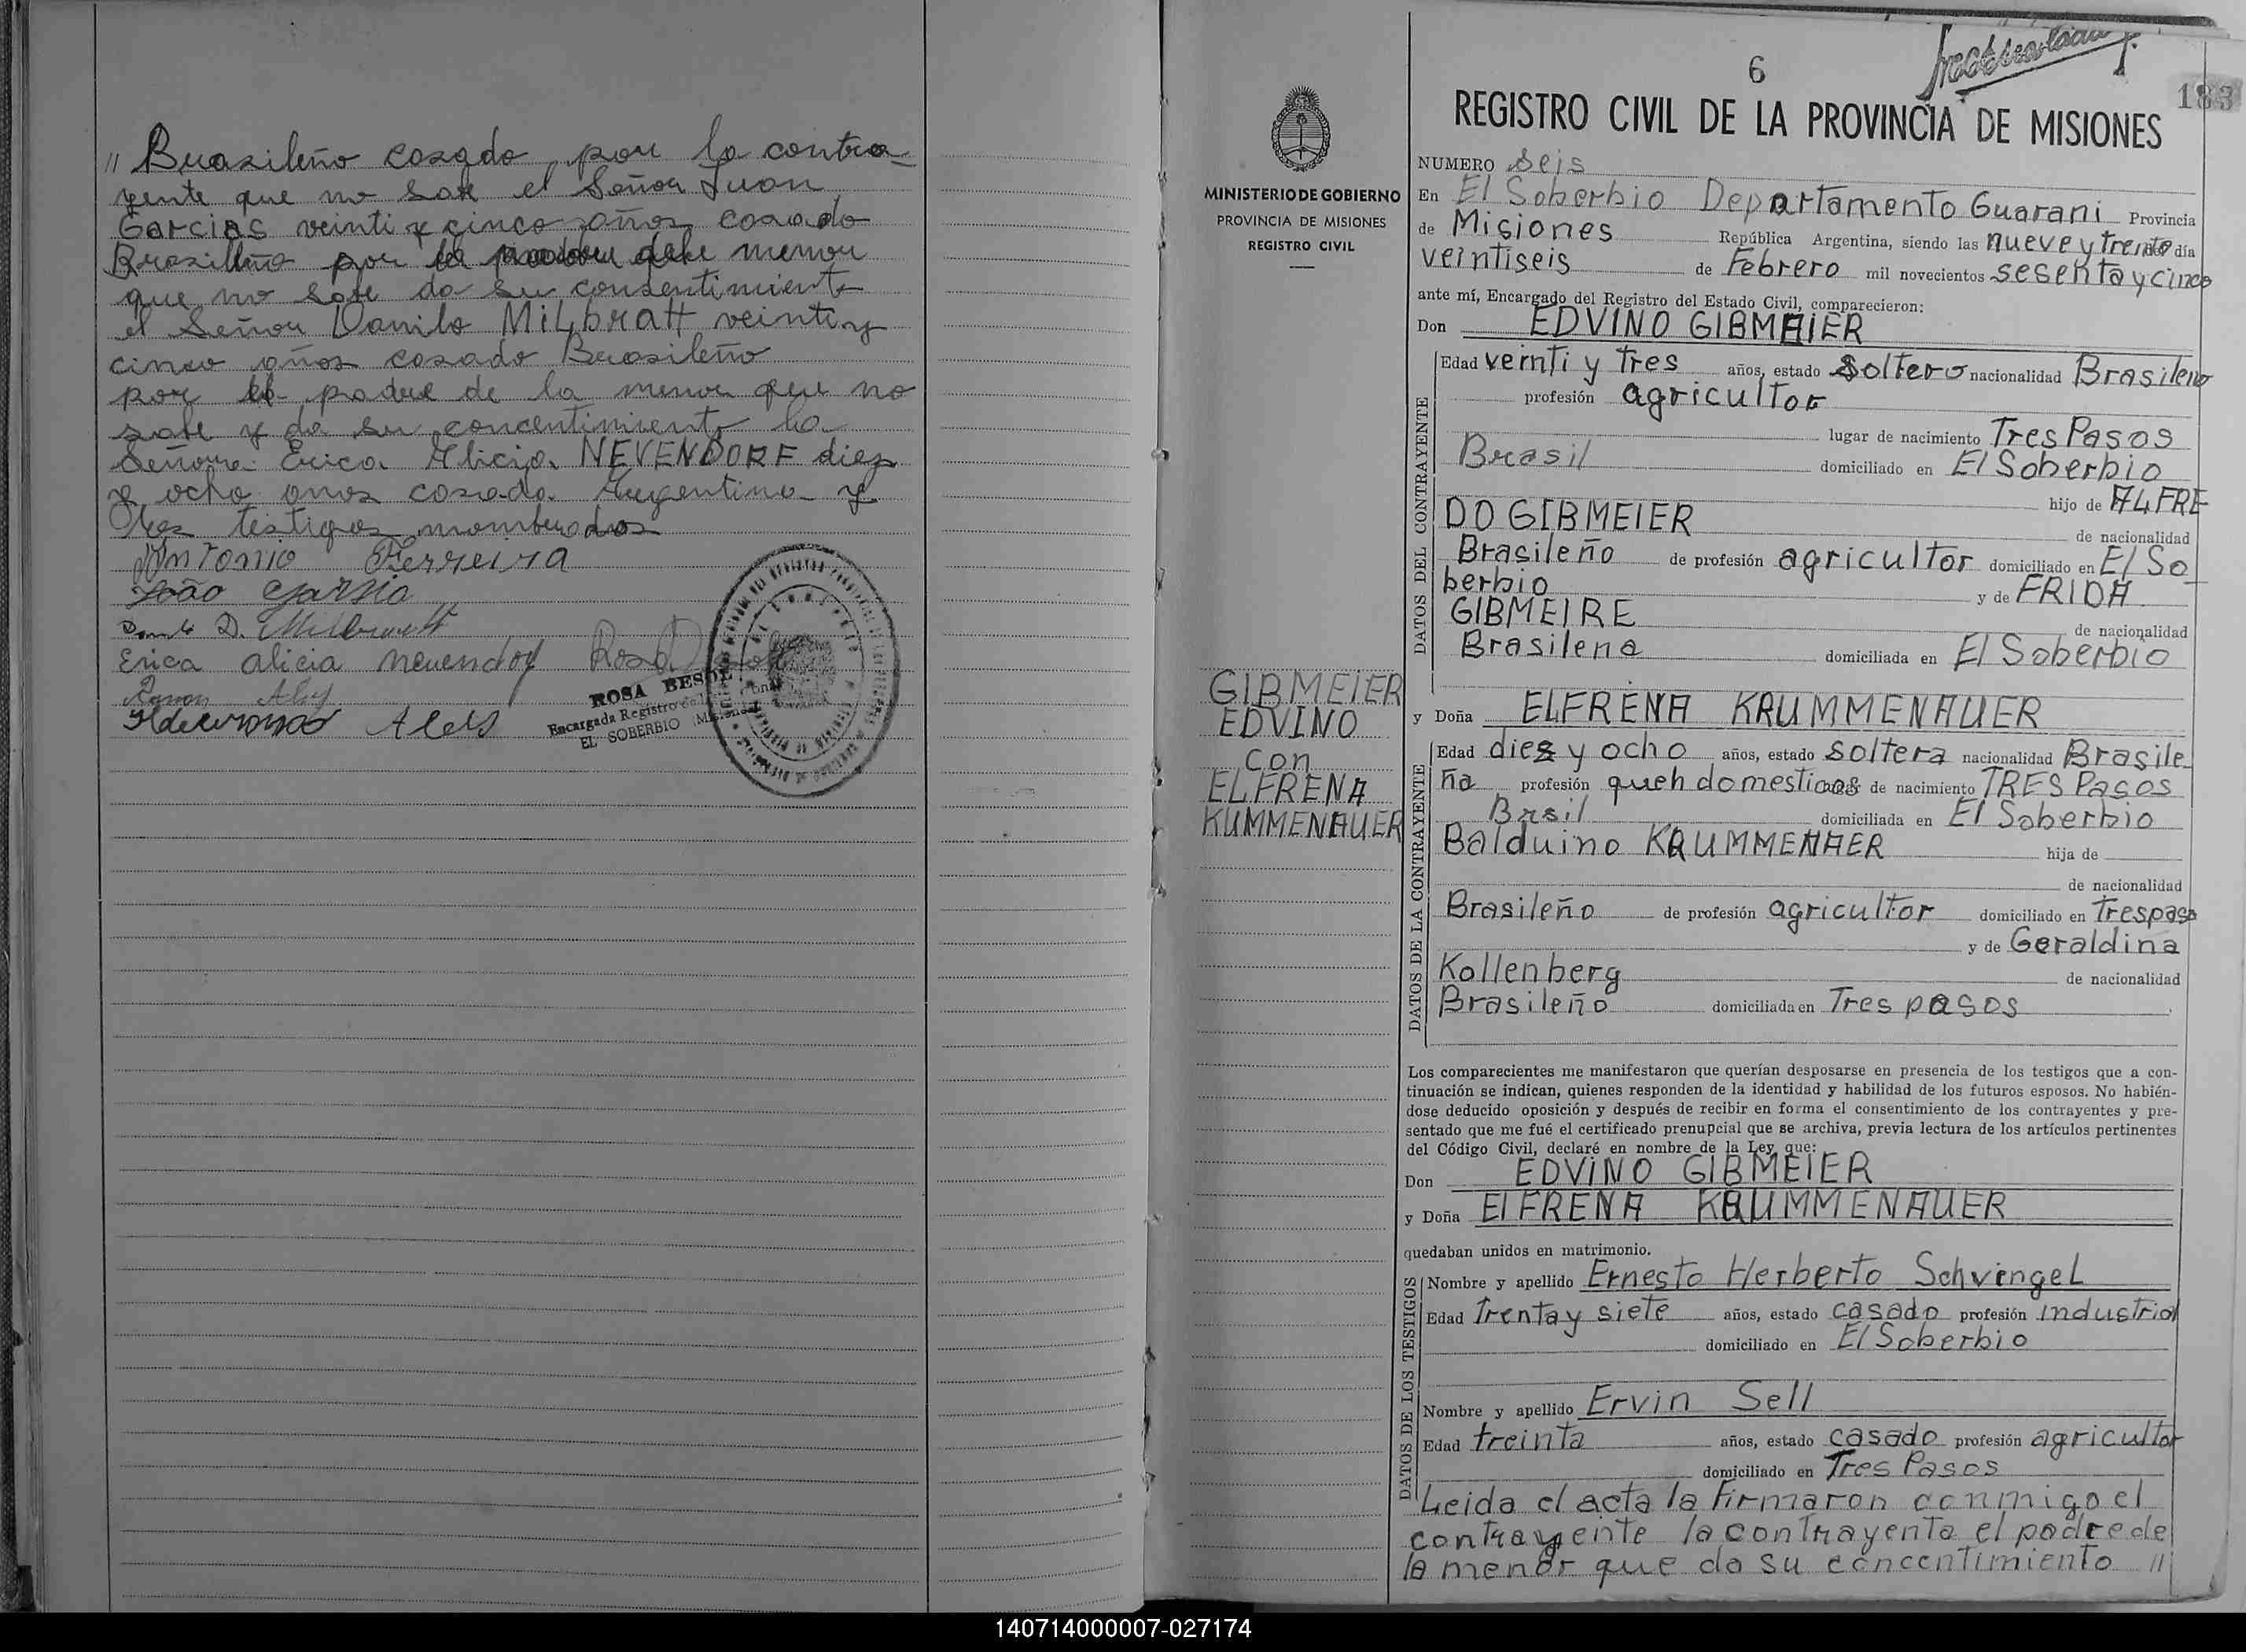 " Brasileño casado, por la contra-
yente que no sabe el Señor Juan
Garcias veinti y cinco años casado
Brasileño por la madre del menor
que no sabe da su consentimiento
el Señor Danilo MiLbratt veinti y
cinco años casado Brasileño
por el padre de la menor que no
sabe y da su concentimiento la
Señora Erica Alicia NEVENDORF diez
y ocho anos casada Argentina y
los testigos nombrados
Antonio Ferreira
João Garsia
D. Milbratt
Erica alicia nevendorf Rosa
Ramon
Ildebrando Ales
ROSA BESOL
Encargada Registro
EL SOBERBIO
MINISTERIO DE GOBIERNO
PROVINCIA DE MISIONES
REGISTRO CIVIL
GIBMEIER
EDVINO
con
ELFRENA
KUMMENAUER
6
183
REGISTRO CIVIL DE LA PROVINCIA DE MISIONES
NUMERO Seis
En El Soberbio Departamento Guarani Provincia
de Misiones República Argentina, siendo las nueve y trenta del día
veintiseis de Febrero mil novecientos sesenta y cinco
ante mí, Encargado del Registro del Estado Civil, comparecieron:
Don EDVINO GIBMEIER
DATOS DEL CONTRAYENTE
Edad veinti y tres años, estado Soltero nacionalidad Brasileno
profesión agricultor
lugar de nacimiento Tres Pasos
Brasil domiciliado en El Soberbio
hijo de ALFRE
DO GIBMEIER
de nacionalidad
Brasileño de profesión agricultor domiciliado en El So
berbio y de FRIDA
GIBMEIRE
de nacionalidad
Brasilena domiciliada en El Soberbio
y Doña ELFRENA KRUMMENAUER
DATOS DE LA CONTRAYENTE
Edad diez y ocho años, estado soltera nacionalidad Brasile
ña profesión queh domesticos de nacimiento TRES Pasos
Brsil domiciliada en El Soberbio
Balduino KRUMMENAER hija de
de nacionalidad
Brasileño de profesión agricultor domiciliado en Trespaso
y de Geraldina
Kollenberg
de nacionalidad
Brasileño domiciliada en Tres pasos
Los comparecientes me manifestaron que querían desposarse en presencia de los testigos que a con-
tinuación se indican, quienes responden de la identidad y habilidad de los futuros esposos. No habién-
dose deducido oposición y después de recibir en forma el consentimiento de los contrayentes y pre-
sentado que me fué el certificado prenupcial que se archiva, previa lectura de los artículos pertinentes
del Código Civil, declaré en nombre de la Ley que:
Don EDVINO GIBMEIER
y Doña ElFRENA KRUMMENAUER
quedaban unidos en matrimonio.
DATOS DE LOS TESTIGOS
Nombre y apellido Ernesto Herberto Schvingel
Edad Trenta y siete años, estado casado profesión industrial
domiciliado en El Soberbio
Nombre y apellido Ervin Sell
Edad treinta años, estado casado profesión agricultor
domiciliado en Tres Pasos
Leida el acta la Firmaron conmigo el
contrayente la contrayenta el padre de
la menor que da su concentimiento "
140714000007-027174